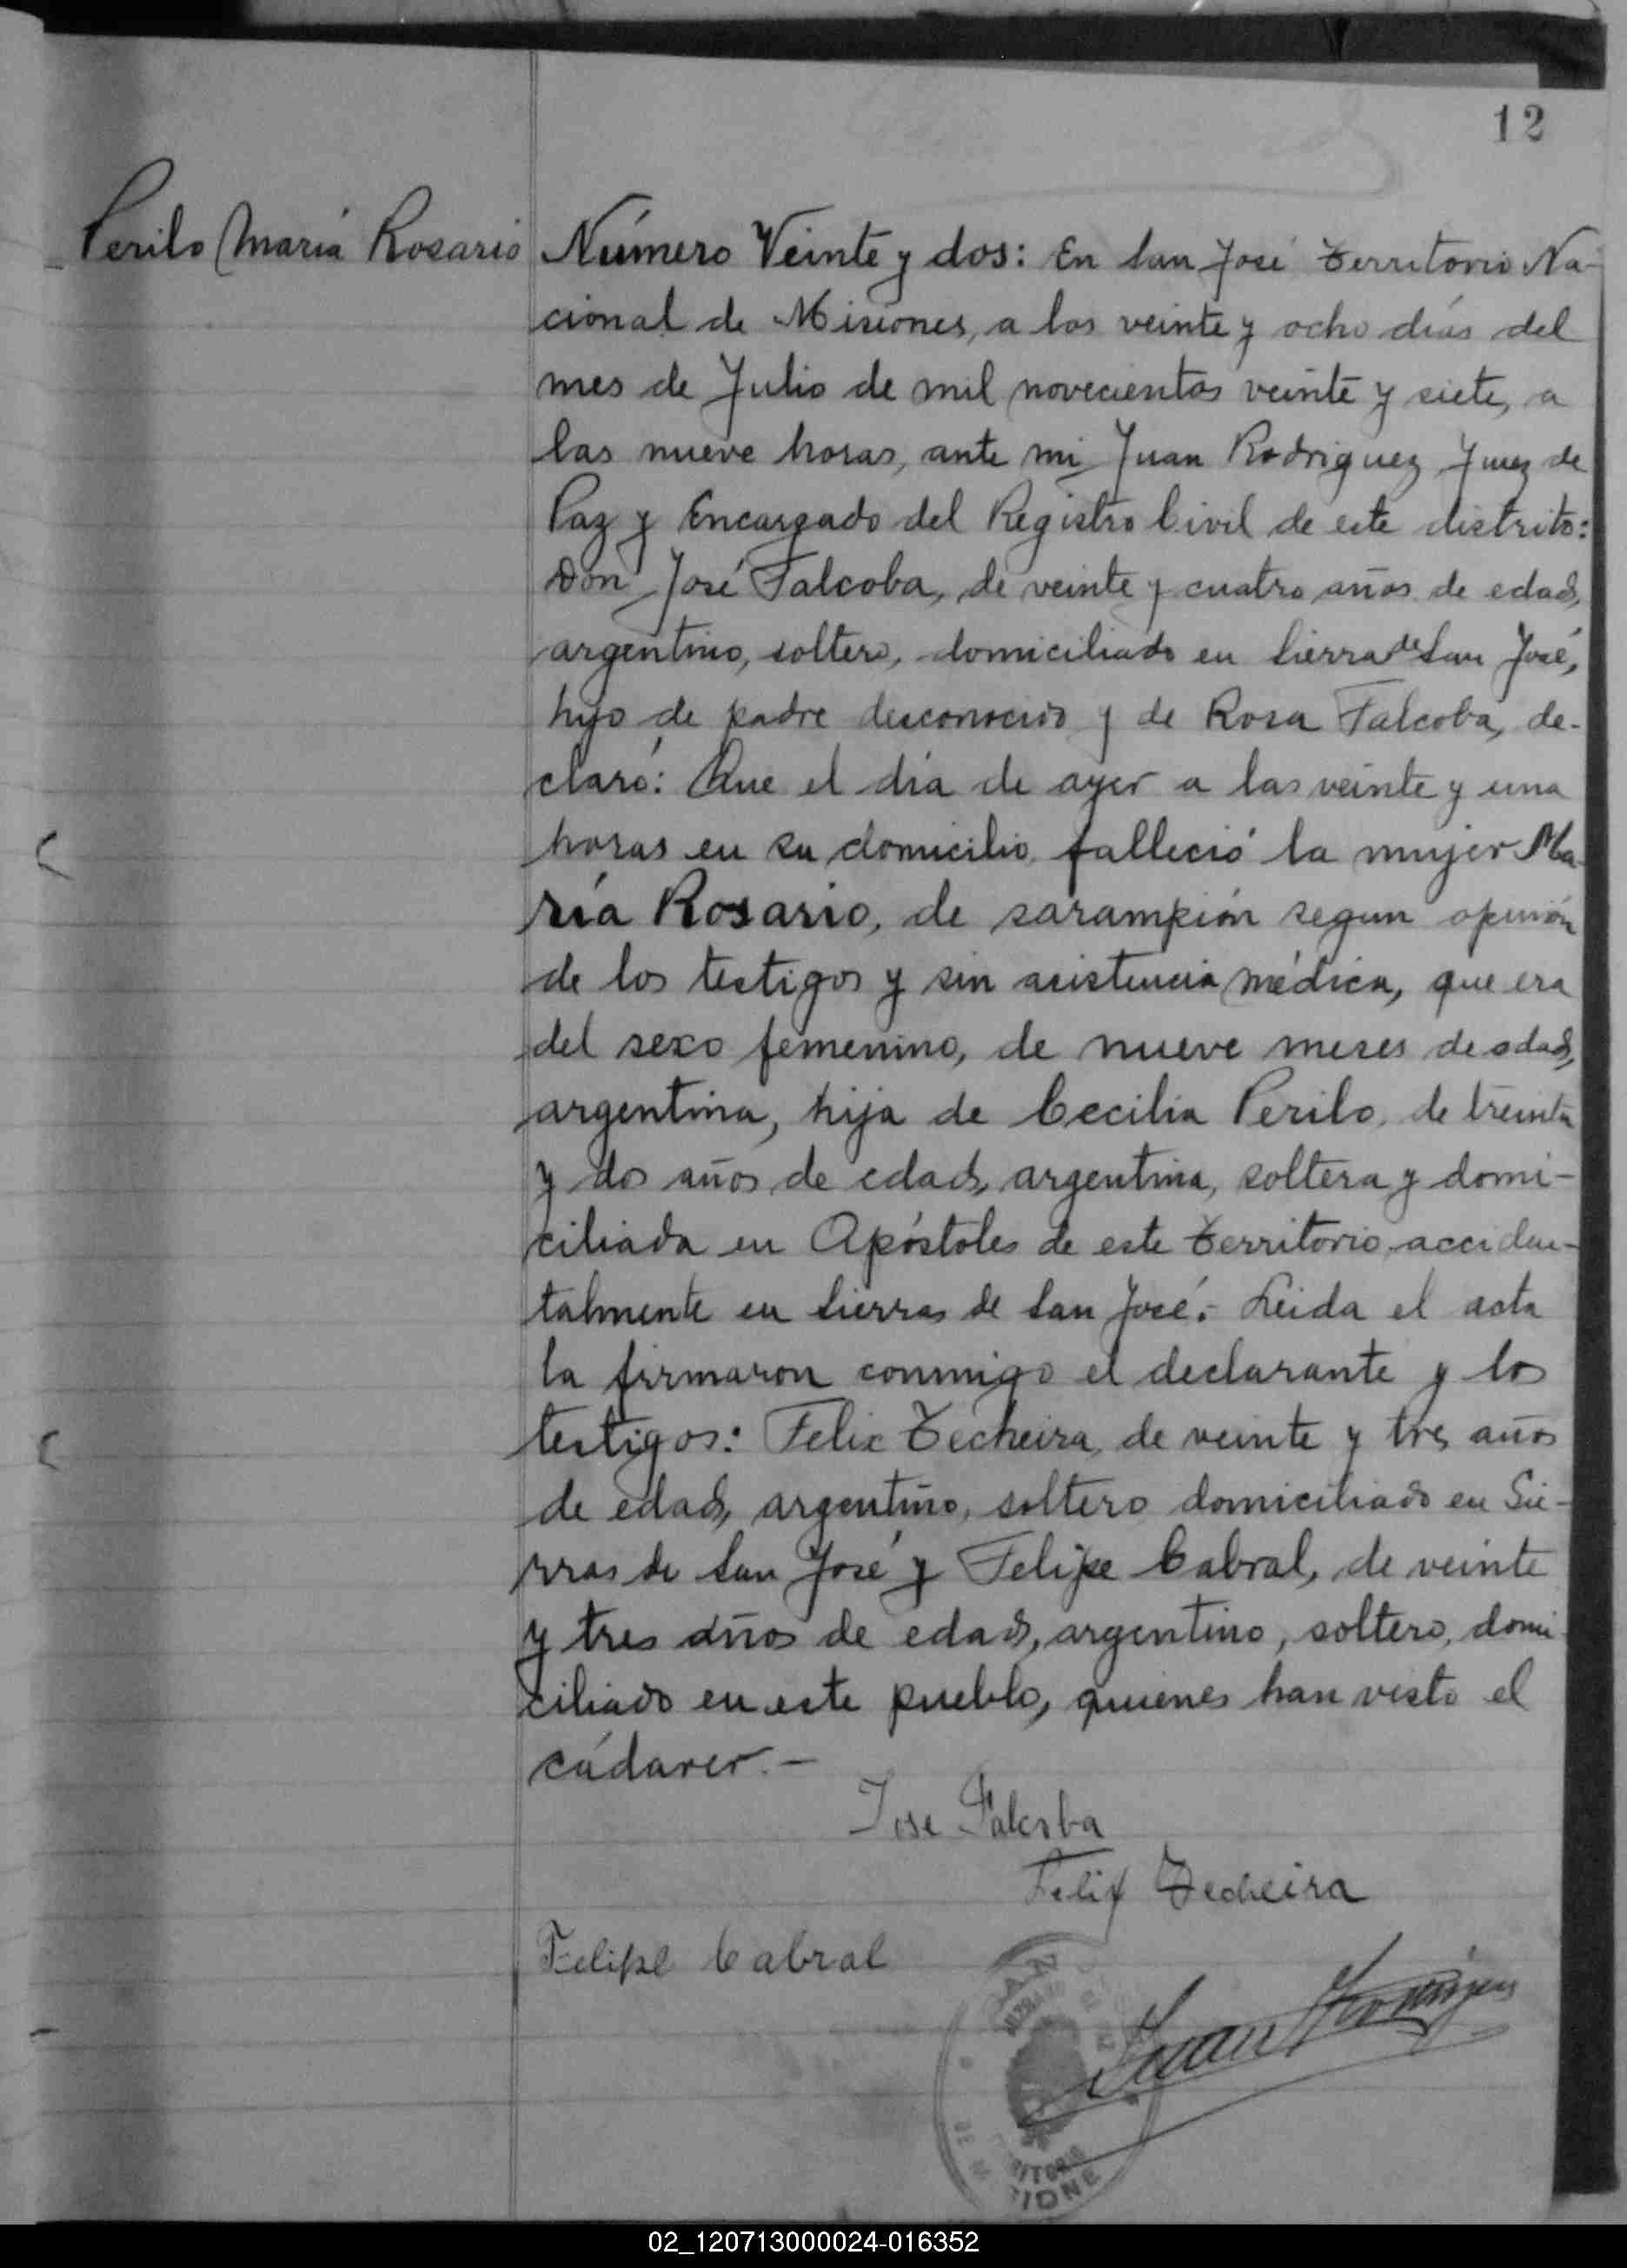 12
Perilo María Rosario
Número Veinte y dos: En San José territorio Na-
cional de Misiones, a los veinte y ocho días del
mes de Julio de mil novecientos veinte y siete, a
las nueve horas, ante mi Juan Rodriguez Juez de
Paz y Encargado del Registro Civil de este distrito:
Don José Falcoba, de veinte y cuatro años de edad,
argentino, soltero, domiciliado en Sierra de San José,
hijo de padre desconocido y de Rosa Falcoba, de-
claró: Que el día de ayer a las veinte y una
horas en su domicilio falleció la mujer Ma-
ría Rosario, de sarampión segun opinión
de los testigos y sin asistencia médica, que era
del sexo femenino, de nueve meses de edad,
argentina, hija de Cecilia Perilo, de treinta
y dos años de edad, argentina, soltera y domi-
ciliada en Apóstoles de este territorio, acciden-
talmente en Sierras de San José.- Leida el acta
la firmaron conmigo el declarante y los
testigos: Felix Techeira, de veinte y tres años
de edad, argentino, soltero domiciliado en Sie-
rras de San José y Felipe Cabral, de veinte
y tres años de edad, argentino, soltero, domi-
ciliado en este pueblo, quienes han visto el
cádaver.-
Jose Falcoba
Felix Techeira
Felipe Cabral
Juan Rodriguez
02_120713000024-016352